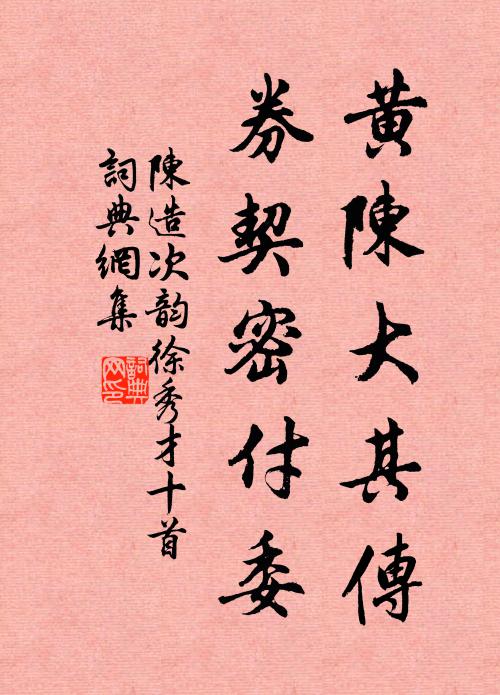 黃陳大其傳
券契密付委
陳造次韵徐秀才十首
詞典網集
詞典网印